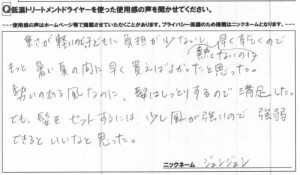 Q低温トリートメントドライヤーを使った使用感の声を聞かせてください。
使用感の声はホームページ等で掲載させていただくことがあります。プライバシー保護のため掲載はニックネームとなります。
重さが軽いので子どもに負担が少ないし、早く乾くので
熱くないのは
もっと暑い夏の間に早く買えばよかったと思った。
勢いのある風なのに、髪はしっとりするので満足した。
でも、髪をセットするには、少し風が強いので強弱
できるといいなと思った。
ニックネーム ジュンジュン